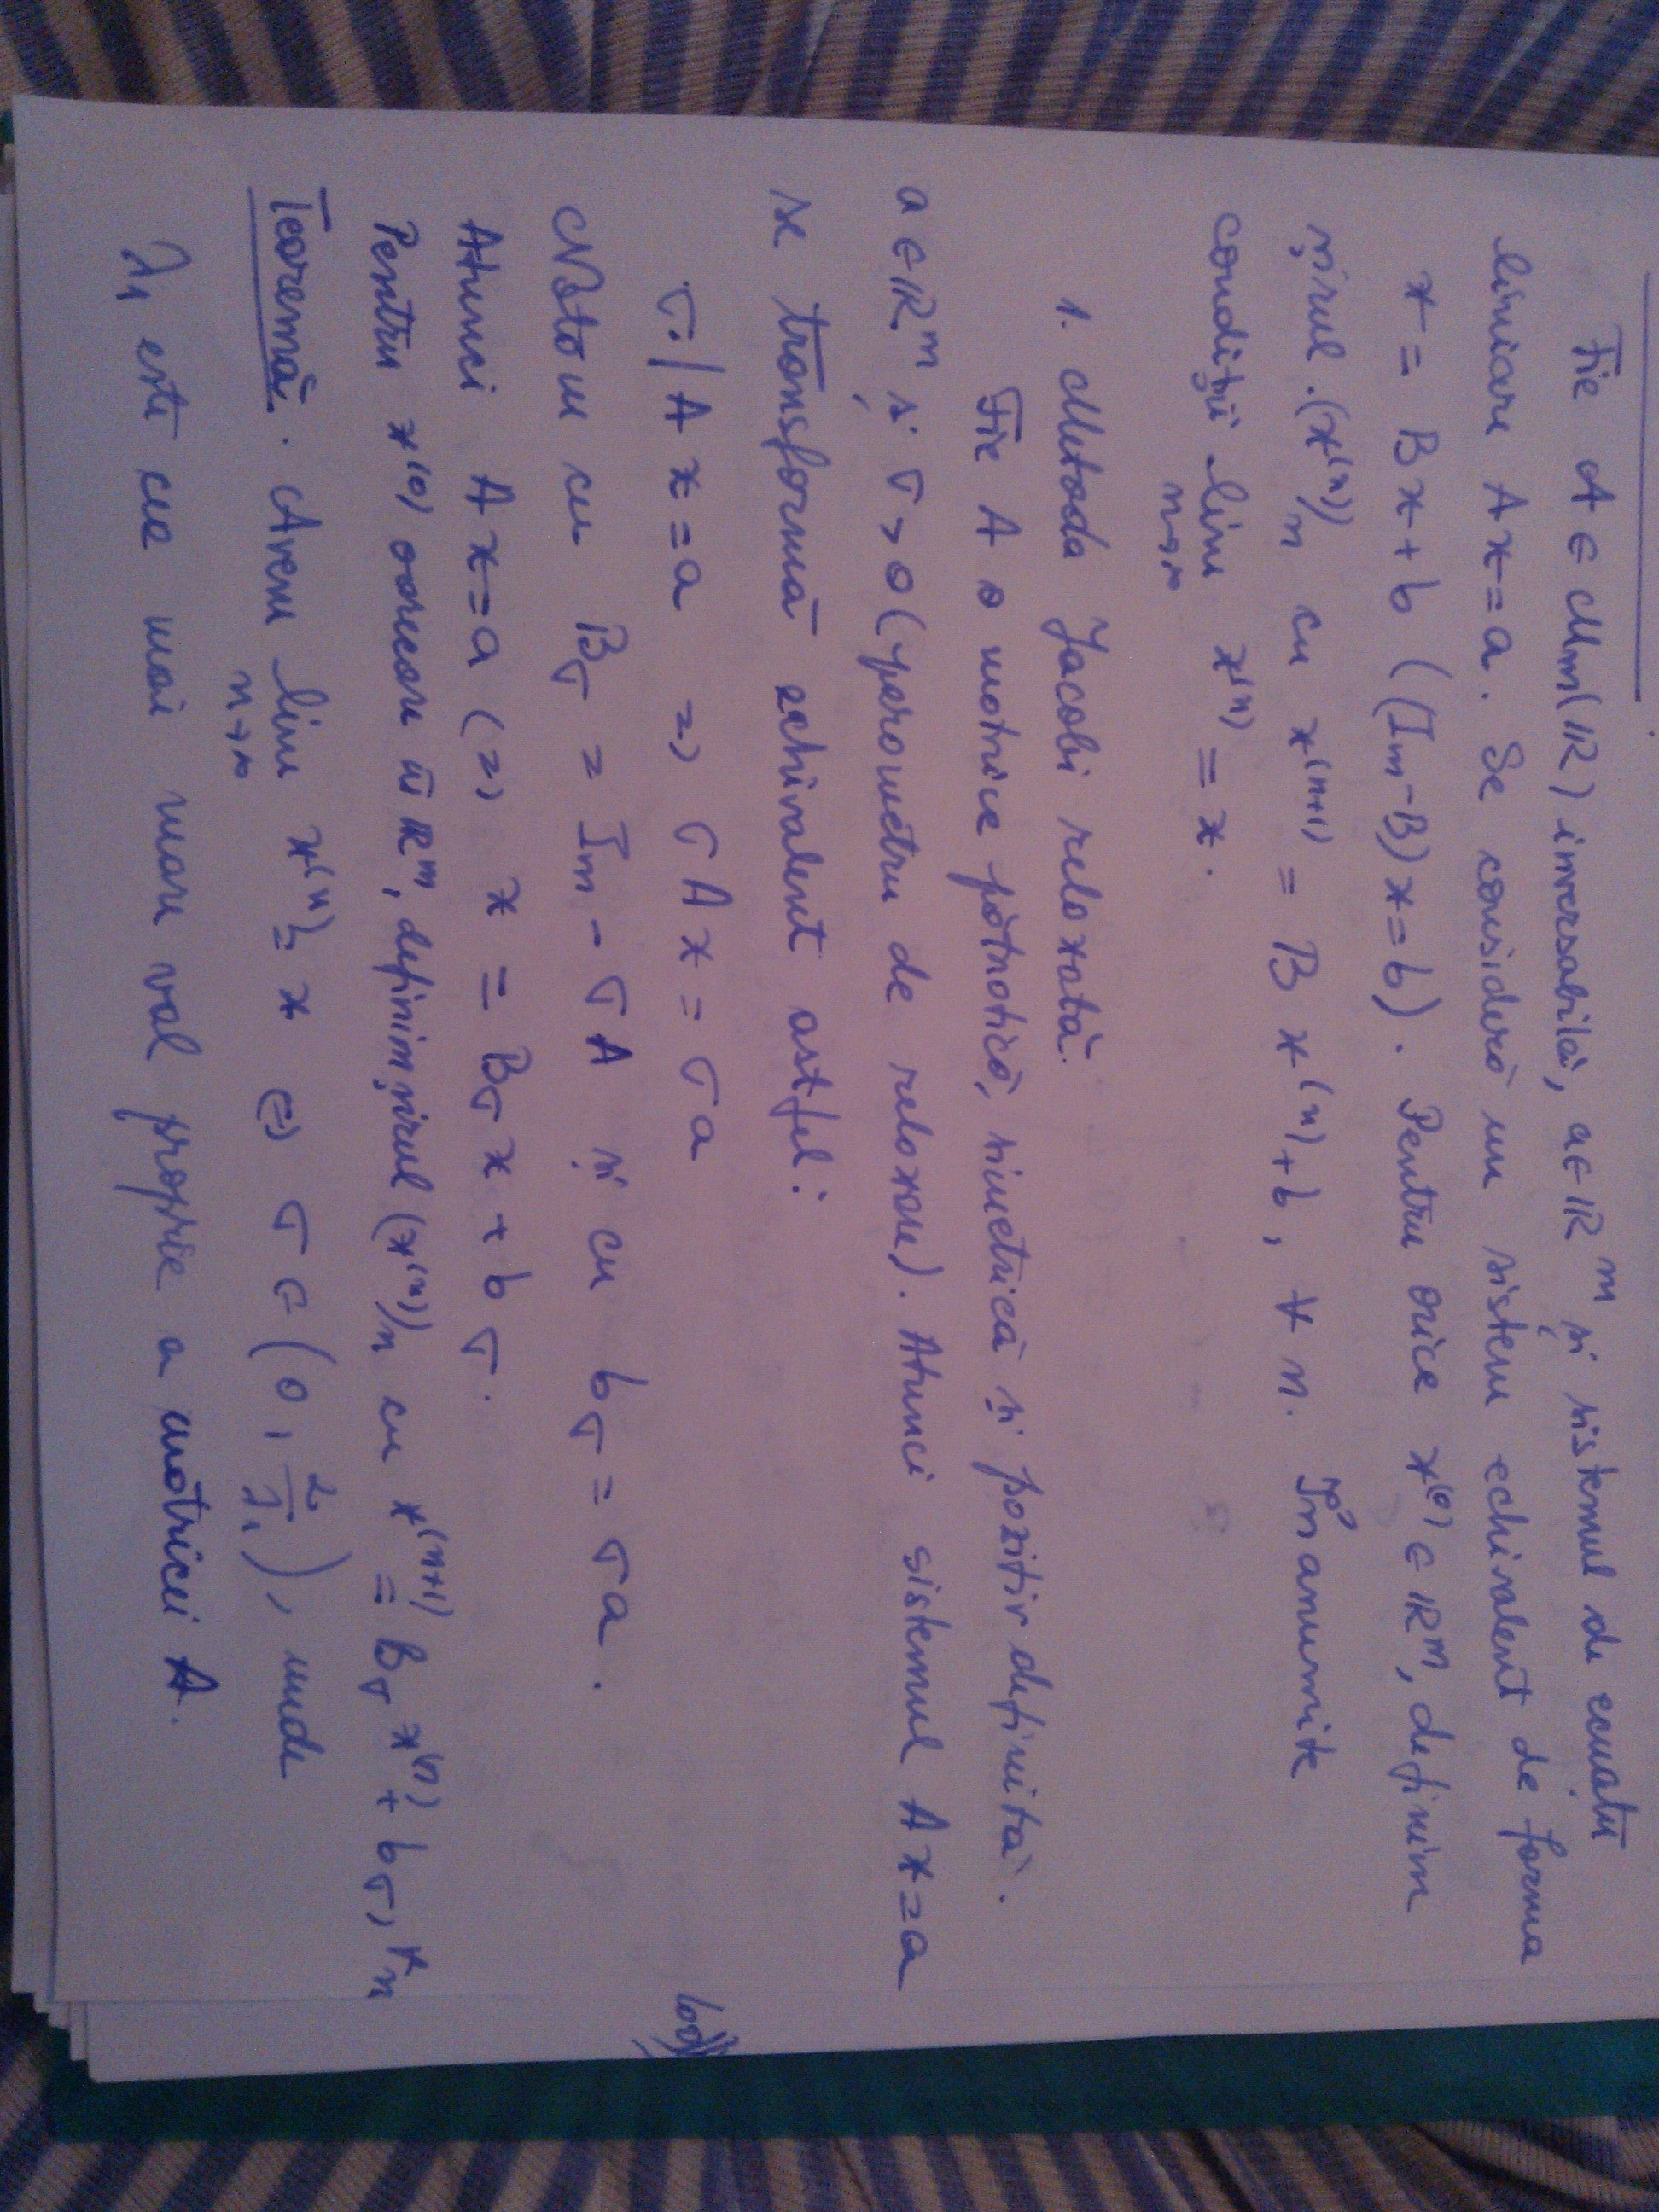 Fie A ∈ Mm(ℝ) inversabilă, a ∈ ℝ^m și sistemul de ecuații
liniare Ax=a. Se consideră un sistem echivalent de forma
x = Bx+b ((Im-B)x=b). Pentru orice x^(0) ∈ ℝ^m, definim
șirul (x^(n))n cu x^(n+1) = Bx^(n)+b, ∀ n. În anumite
condiții lim x^(n) = x.
n→∞
1. Metoda Jacobi relaxată.
Fie A o matrice pătratică, simetrică și pozitiv definită.
a ∈ ℝ^m și σ>0 (parametru de relaxare). Atunci sistemul Ax=a
se transformă echivalent astfel:
σ·| Ax=a => σAx = σa
Notăm cu Bσ = Im - σA și cu bσ = σa.
Atunci Ax=a (=) x = Bσx + bσ.
Pentru x^(0) oarecare în ℝ^m, definim șirul (x^(n))n cu x^(n+1) = Bσ x^(n) + bσ, ∀n
Teoremă. Avem lim x^(n) = x ⇔ σ ∈ (0, 2/λ1), unde
n→∞
λ1 este cea mai mare val proprie a matricei A.